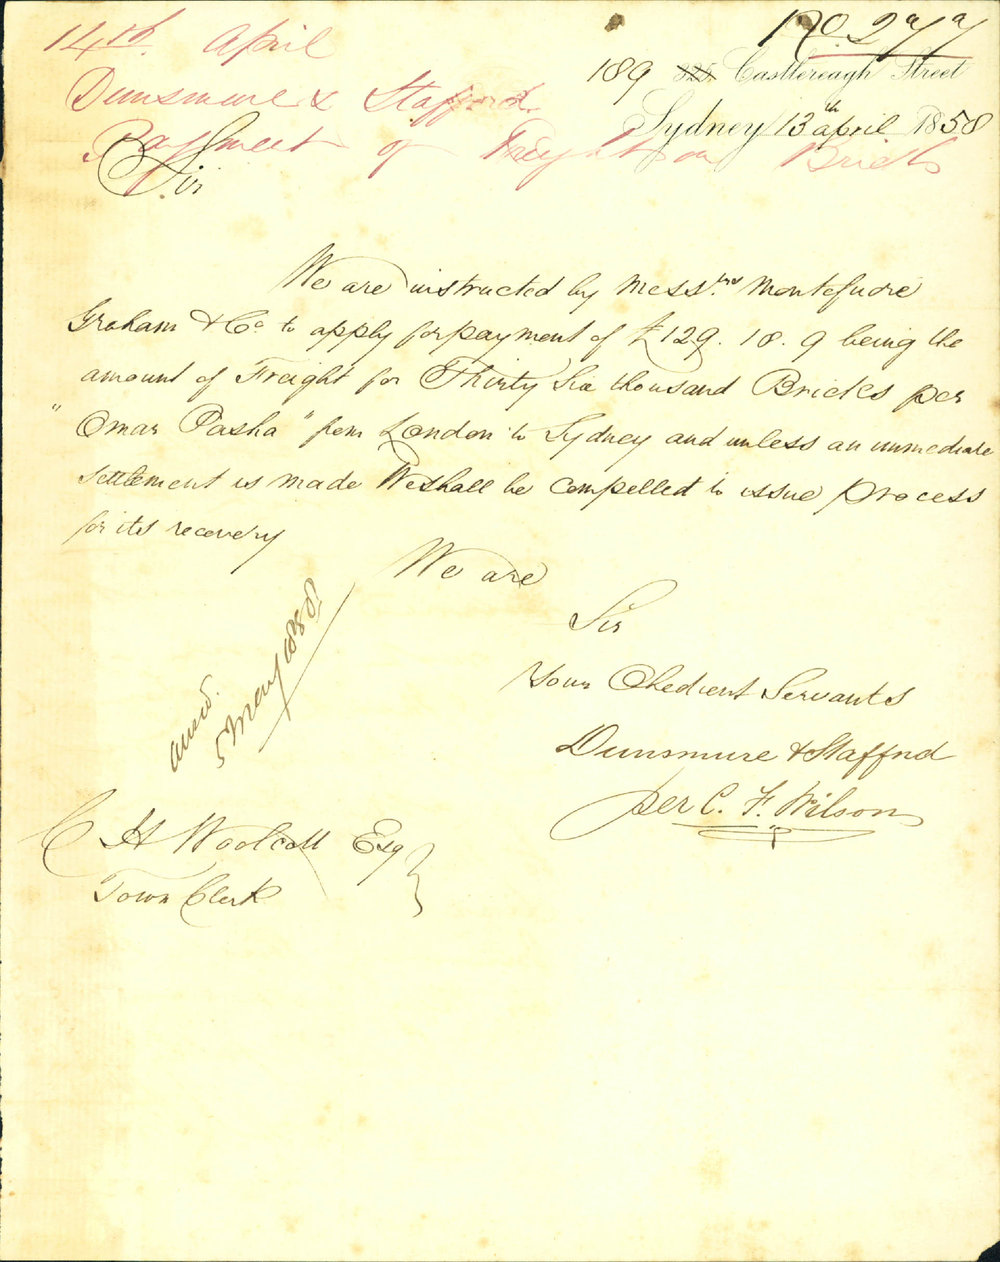 No. 277
14th April
189 325 Castlereagh Street
Dunsmure & Stafford
Sydney 13th april 1858
Payment of Freight on Bricks
Sir
We are instructed by Messrs. Montefiore
Graham & Co to apply for payment of £129. 18. 9 being the
amount of Freight for Thirty Six thousand Bricks per
"Omar Pasha" from London to Sydney and unless an immediate
settlement is made We shall be compelled to issue process
for its recovery
We are
Sir
Your Obedient Servants
Dunsmure & Stafford
per C. F. Wilson
5 May 1858
C H Woolcott Esq
Town Clerk